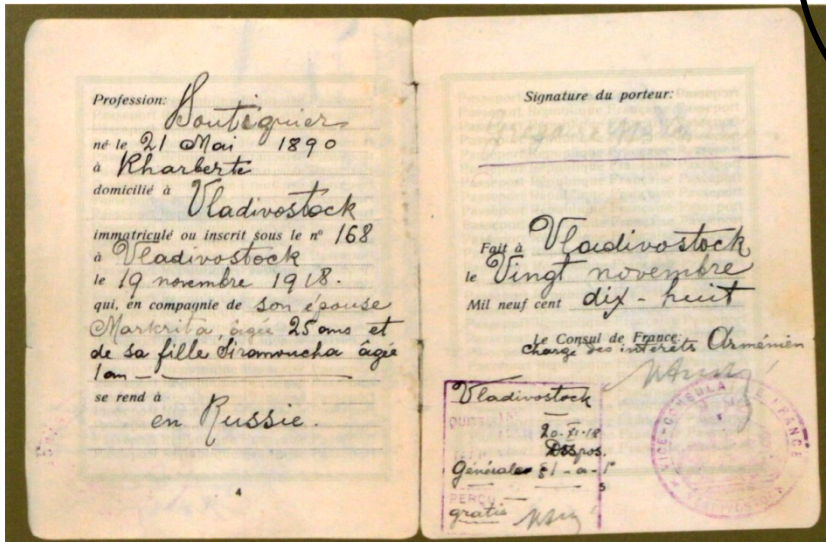 Profession: Boutiquier
né le 21 Mai 1890
à Kharberte
domicilié à
Vladivostock
immatriculé ou inscrit sous le nº 168
à Vladivostock
le 19 novembre 1918.
qui, en compagnie de son épouse
Markrita, âgée 25 ans et
de sa fille Siramoucha âgée
1 an
se rend à
en Russie.
4
Signature du porteur:
Fait à Vladivostock
le Vingt novembre
Mil neuf cent dix-huit
Le Consul de France:
chargé des intérêts Arménien
Vladivostock
20-XI-18
Dispos.
Générales 51-a-1º
5
PERÇU
gratis
VICE-CONSULAT DE FRANCE
VLADIVOSTOCK